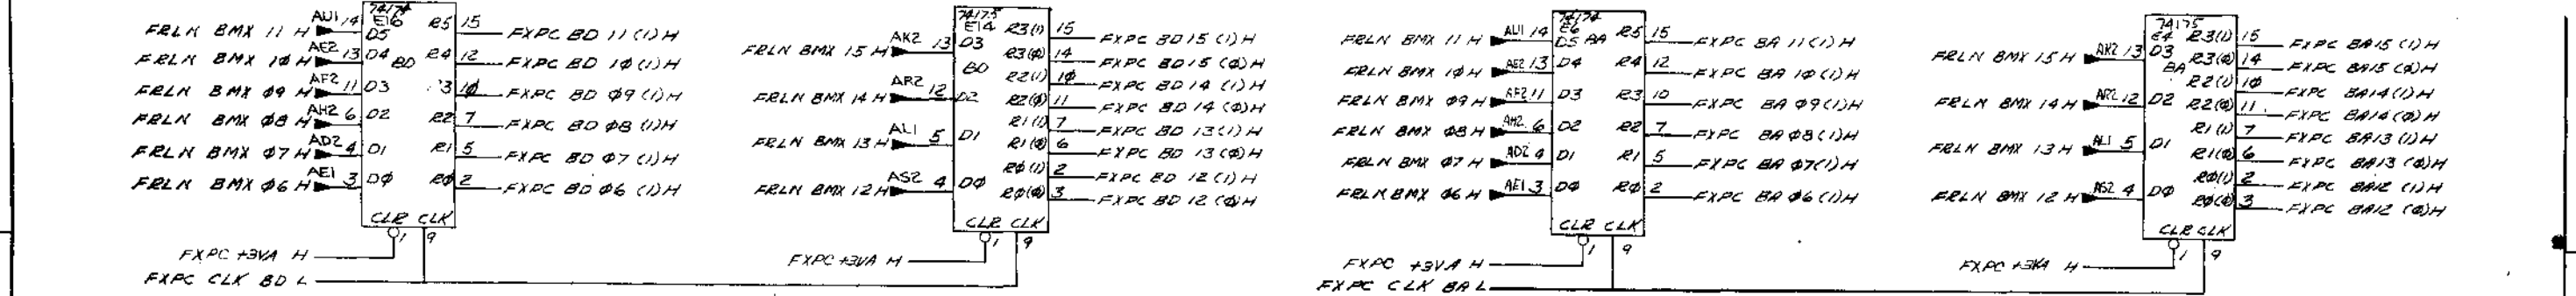 74174
E16
FRLN BMX 11 H AU1 14 D5 R5 15 FXPC BD 11 (1) H
FRLN BMX 1Ø H AE2 13 D4 BD R4 12 FXPC BD 1Ø (1) H
FRLN BMX Ø9 H AF2 11 D3 3 1Ø FXPC BD Ø9 (1) H
FRLN BMX Ø8 H AH2 6 D2 R2 7 FXPC BD Ø8 (1) H
FRLN BMX Ø7 H AD2 4 D1 R1 5 FXPC BD Ø7 (1) H
FRLN BMX Ø6 H AE1 3 DØ RØ 2 FXPC BD Ø6 (1) H
CLR CLK
1 9
FXPC +3VA H
FXPC CLK BD L
74175
E14 R3(1) 15 FXPC BD 15 (1) H
FRLN BMX 15 H AK2 13 D3 R3(Ø) 14 FXPC BD 15 (Ø) H
BD R2(1) 1Ø FXPC BD 14 (1) H
FRLN BMX 14 H AR2 12 D2 R2(Ø) 11 FXPC BD 14 (Ø) H
R1(1) 7 FXPC BD 13 (1) H
FRLN BMX 13 H AL1 5 D1 R1(Ø) 6 FXPC BD 13 (Ø) H
RØ(1) 2 FXPC BD 12 (1) H
FRLN BMX 12 H AS2 4 DØ RØ(Ø) 3 FXPC BD 12 (Ø) H
CLR CLK
1 9
FXPC +3VA H
74174
E6
FRLN BMX 11 H AU1 14 D5 BA R5 15 FXPC BA 11 (1) H
FRLN BMX 1Ø H AE2 13 D4 R4 12 FXPC BA 1Ø (1) H
FRLN BMX Ø9 H AF2 11 D3 R3 10 FXPC BA Ø9 (1) H
FRLN BMX Ø8 H AH2 6 D2 R2 7 FXPC BA Ø8 (1) H
FRLN BMX Ø7 H AD2 4 D1 R1 5 FXPC BA Ø7 (1) H
FRLN BMX Ø6 H AE1 3 DØ RØ 2 FXPC BA Ø6 (1) H
CLR CLK
1 9
FXPC +3VA H
FXPC CLK BA L
74175
E4 R3(1) 15 FXPC BA15 (1) H
FRLN BMX 15 H AK2 13 D3 R3(Ø) 14 FXPC BA15 (Ø) H
BA R2(1) 1Ø FXPC BA14 (1) H
FRLN BMX 14 H AR2 12 D2 R2(Ø) 11 FXPC BA14 (Ø) H
R1(1) 7 FXPC BA13 (1) H
FRLN BMX 13 H AL1 5 D1 R1(Ø) 6 FXPC BA13 (Ø) H
RØ(1) 2 FXPC BA12 (1) H
FRLN BMX 12 H AS2 4 DØ RØ(Ø) 3 FXPC BA12 (Ø) H
CLR CLK
1 9
FXPC +3VA H